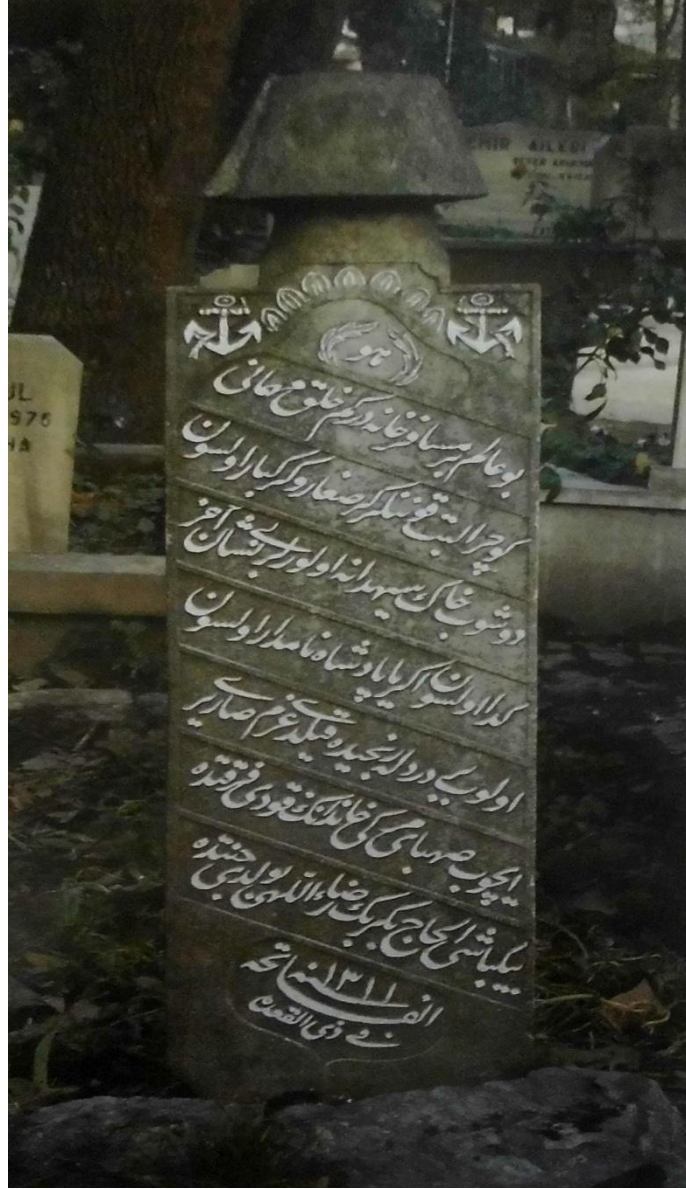 هو
بو عالم بر مسافرخانه در كم خلق مهمانى
كوچر البت قوننلر كر صغار و كر كبار اولسون
دوشوب خاك سيهدانه اولور بى نشان آخر
كدا اولسون اكر يا پادشاه نامدار اولسون
اولوب درد ايله رنجيده قيلدى عزم
ايچوب صهباى مركى خاندانك قودى فرقتده
بيكباشى الحاج بكر بك رضاء اللهى بولدى جنتده
١٣١١ الفاتحه
فى ذى القعده